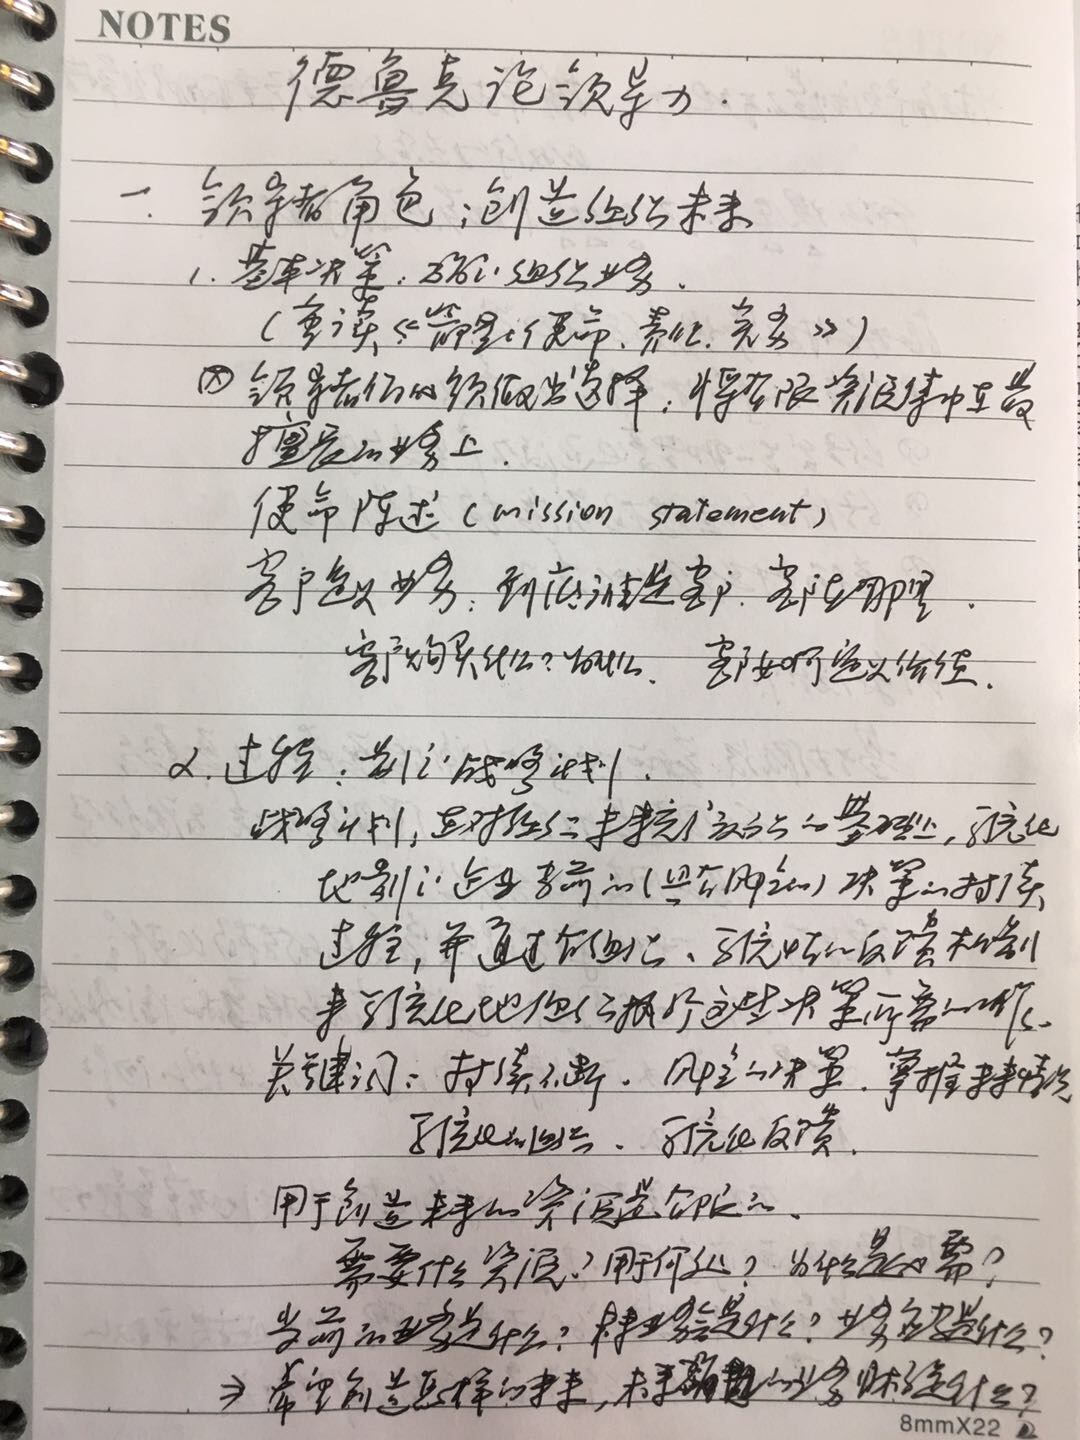 NOTES
德鲁克论领导力.
一. 领导者角色:创造组织未来
1. 基本决策:确定组织业务.
(重读《管理:使命、责任、实务》)
领导者们必须做出选择,将有限资源集中在最
擅长的业务上.
使命陈述(mission statement)
客户定义业务:到底谁是客户.客户在哪里.
客户购买什么?为什么.客户如何定义价值.
2.过程:制订战略计划.
战略计划,在对组织未来充分的基础上,系统化
地制订企业当前的(具有风险的)决策的持续
过程,并通过有组织、系统性的反馈机制
来系统化地组织执行这些决策所需的工作.
关键词:持续不断.风险的决策.掌握未来情况
系统化的组织.系统化反馈.
用于创造未来的资源是有限的.
需要什么资源?用于何处?为什么是必需?
当前的业务是什么?未来业务会是什么?业务应该是什么?
⇒希望创造怎样的未来,未来的业务是什么?
8mmX22